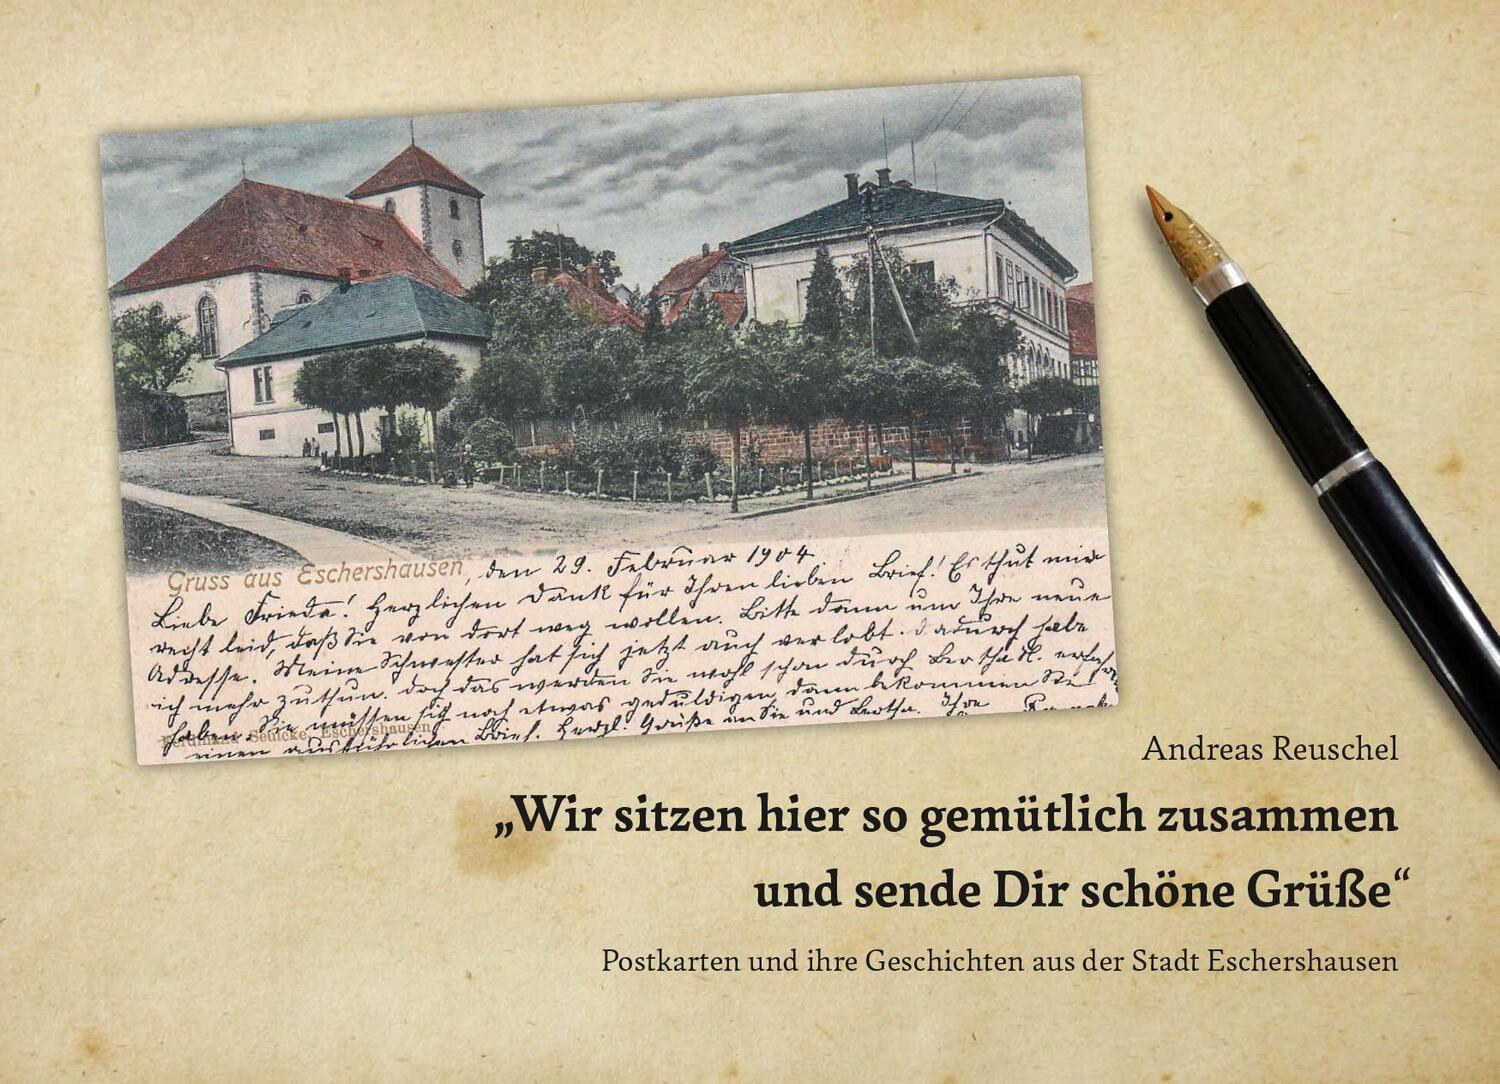 Gruss aus Eschershausen, den 29. Februar 1904
Liebe Frieda! Herzlichen Dank für Ihren lieben Brief! Es thut mir
recht leid, daß Sie von dort weg wollen. Bitte dann um Ihre neue
Adresse. Meine Schwester hat sich jetzt auch verlobt. dadurch habe
ich mehr zu thun. doch das werden Sie wohl schon durch Bertha
haben. Sie müssen sich noch etwas geduldigen, dann bekommen Sie
einen ausführlichen Brief. Herzl. Grüße an Sie und Bertha. Ihre
Ferdinand Eschershausen
Andreas Reuschel
„Wir sitzen hier so gemütlich zusammen
und sende Dir schöne Grüße“
Postkarten und ihre Geschichten aus der Stadt Eschershausen